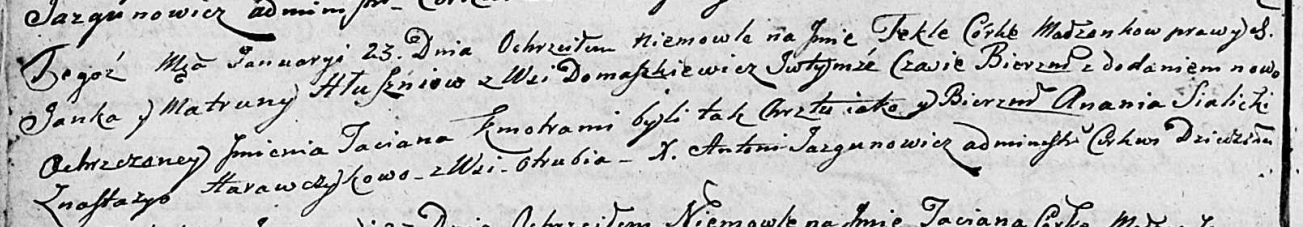 Jazgunowicz admin
Tegoż Mca Januaryi 23. Dnia Ochrzciłem niemowle na Jmie Tekle Córke Małżonkow prawych
Janka y Matruny Hłuszniow z Wsi Domaszkiewicz Jwtymże Czasie Bierzm z dodaniem nowo
Ochrzczoney Jmienia Taciana Kmotrami byli tak Chrztu iako y Bierzm Anania Sialicki
Znastazyo Harawczykowo z Wsi Otrubia X. Antoni Jazgunowicz administr Cerkwi
Dnia Ochrzciłem Niemowle na Jmie Taciana Córke